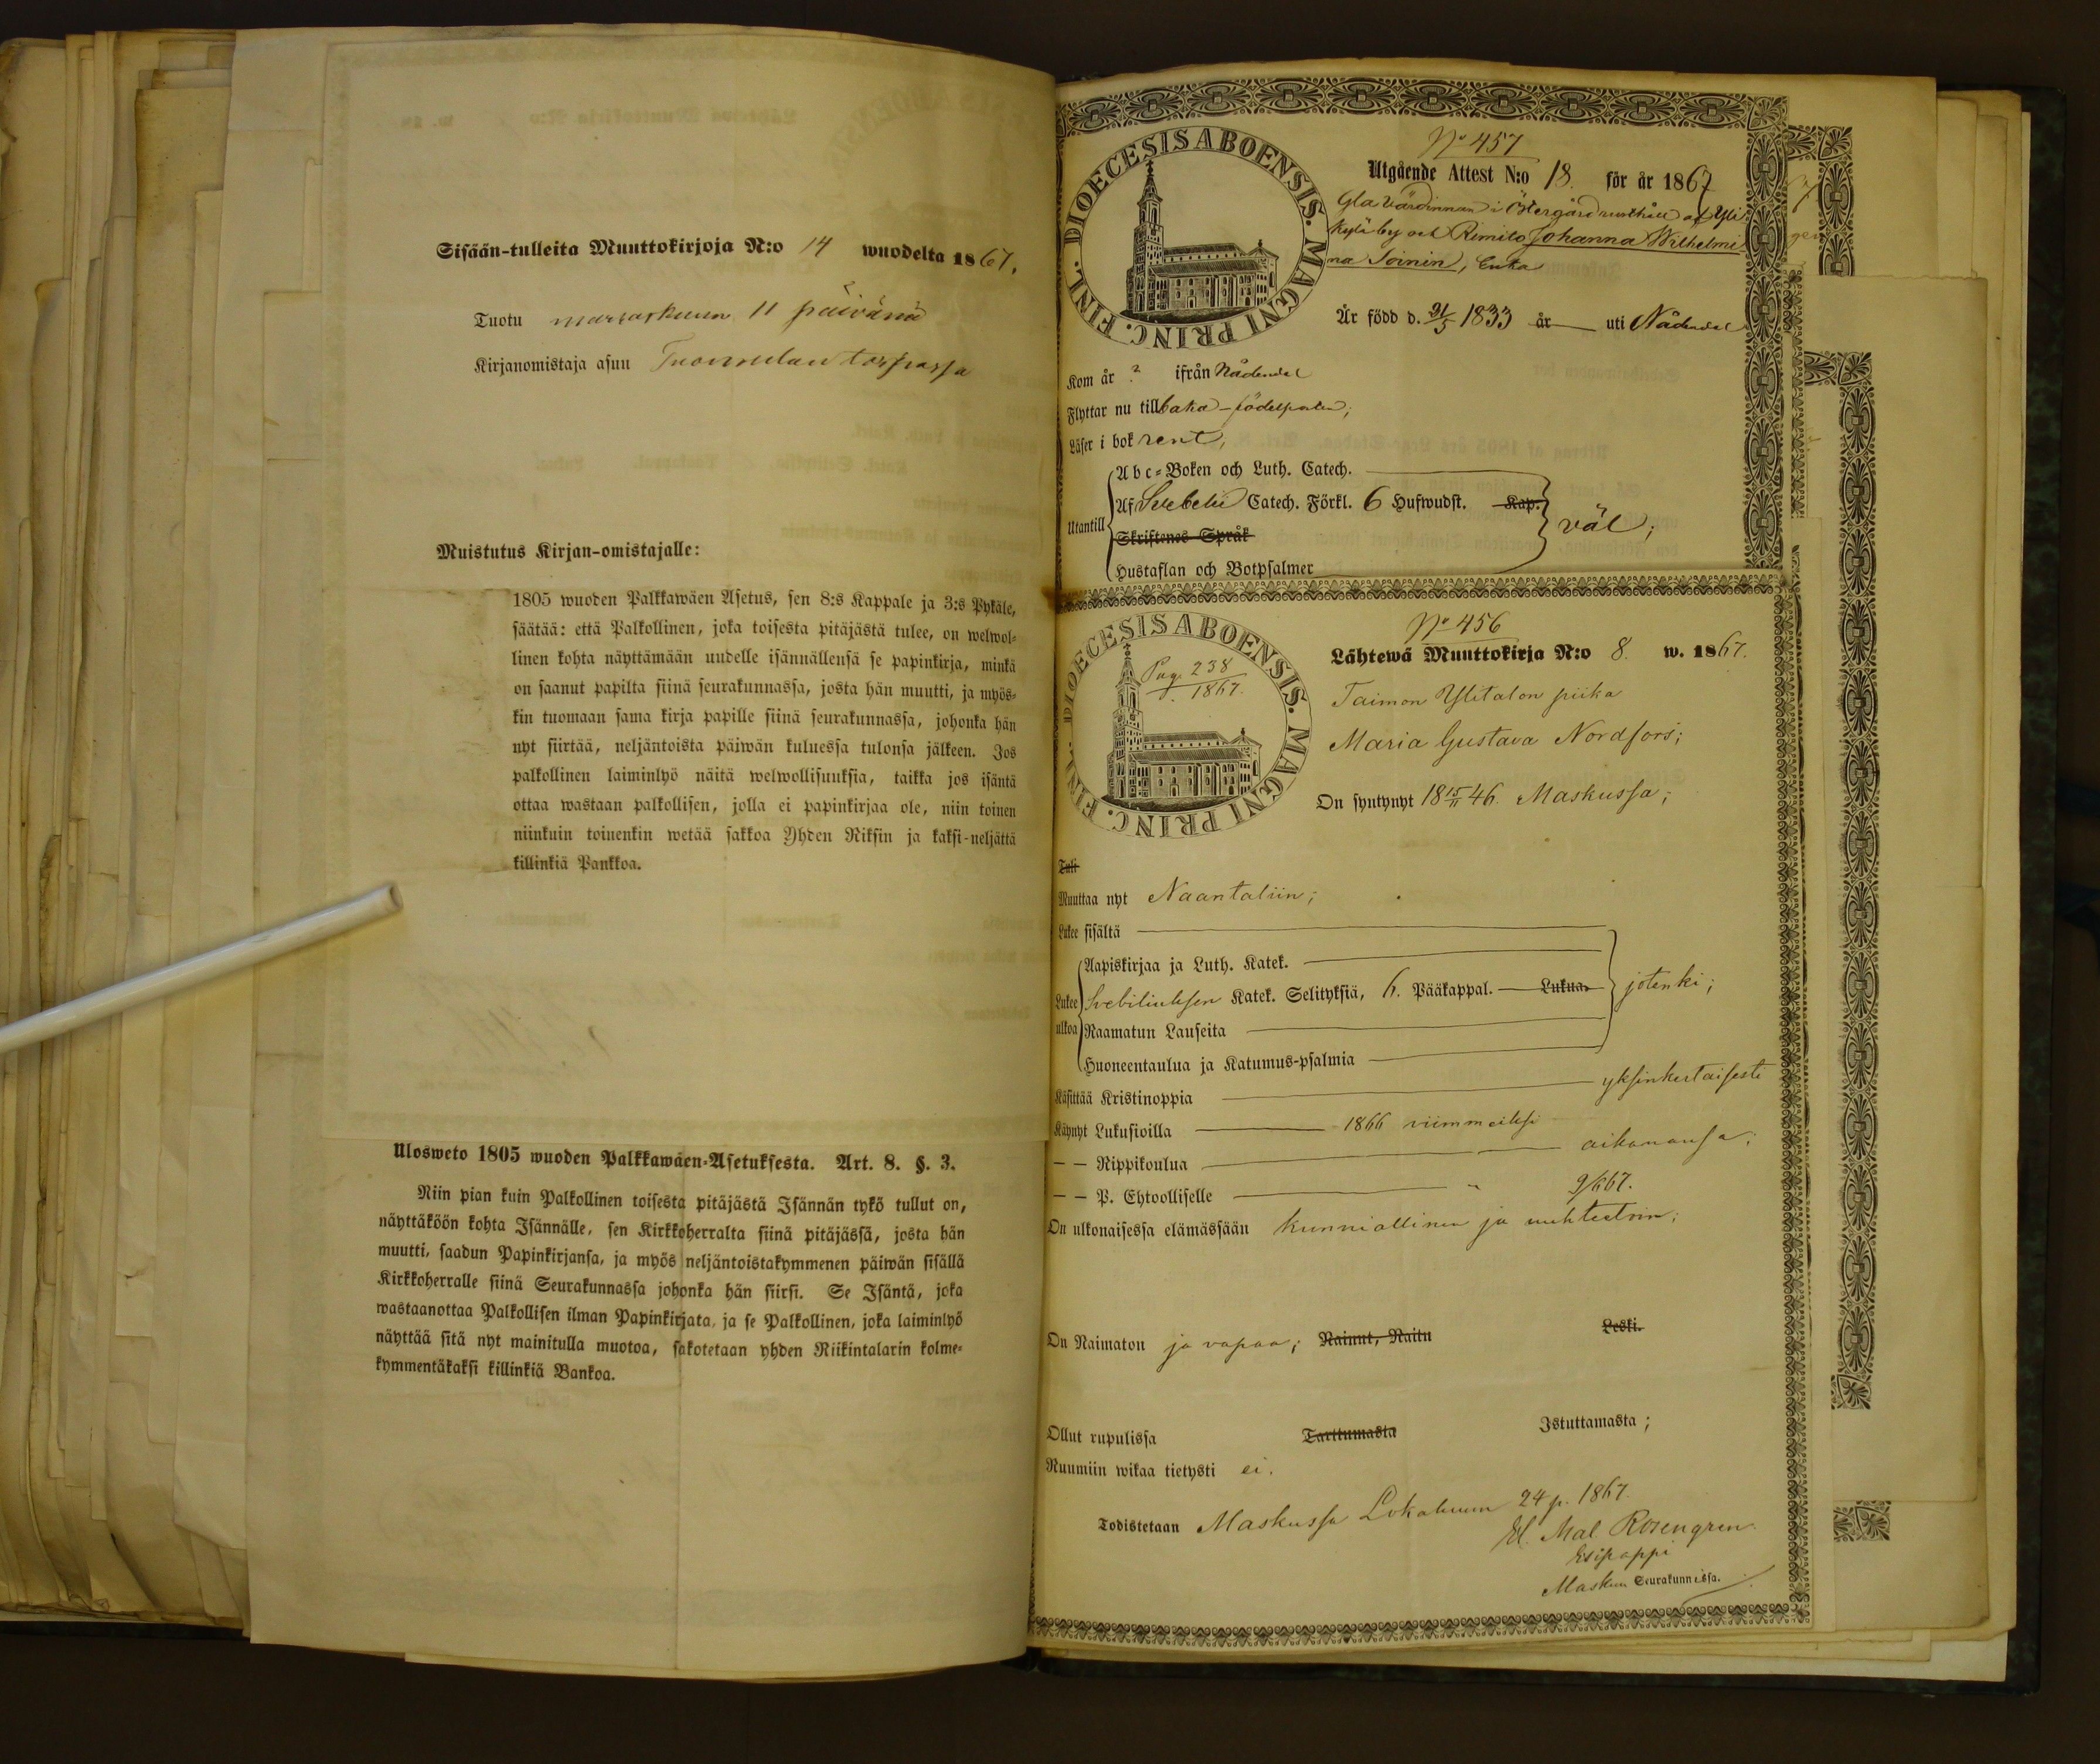 Sisään-tulleita Muuttokirjoja N:o 14 wuodelta 1867.
Tuotu marraskuun 11 päivänä
Kirjanomistaja asuu Tuomolan torpassa
Muistutus Kirjan-omistajalle:
1805 wuoden Palkkawäen Asetus, sen 8:s Kappale ja 3:s Pykäle,
säätää: että Palkollinen, joka toisesta pitäjästä tulee, on welwol-
linen kohta näyttämään uudelle isännällensä se papinkirja, minkä
on saanut papilta siinä seurakunnassa, josta hän muutti, ja myös-
kin tuomaan sama kirja papille siinä seurakunnassa, johonka hän
nyt siirtää, neljäntoista päiwän kuluessa tulonsa jälkeen. Jos
palkollinen laiminlyö näitä welwollisuuksia, taikka jos isäntä
ottaa wastaan palkollisen, jolla ei papinkirjaa ole, niin toinen
niinkuin toinenkin wetää sakkoa Yhden Riksin ja kaksi-neljättä
killinkiä Pankkoa.
Ulosweto 1805 wuoden Palkkawäen-Asetuksesta. Art. 8. §. 3.
Niin pian kuin Palkollinen toisesta pitäjästä Isännän tykö tullut on,
näyttäköön kohta Isännälle, sen Kirkkoherralta siinä pitäjässä, josta hän
muutti, saadun Papinkirjansa, ja myös neljäntoistakymmenen päiwän sisällä
Kirkkoherralle siinä Seurakunnassa johonka hän siirsi. Se Isäntä, joka
wastaanottaa Palkollisen ilman Papinkirjata, ja se Palkollinen, joka laiminlyö
näyttää sitä nyt mainitulla muotoa, sakotetaan yhden Riikintalarin kolme-
kymmentäkaksi killinkiä Bankoa.
DIOECESIS ABOENSIS. MAGNI PRINC. FINL.
No 457
Utgående Attest N:o 18. för år 1867
Gla Värdinnan i Östergård rusthåll af Yli
kylä by och Rimito Johanna Wilhelmi
na Soinin, Enka
Är född d. 31/5 1833 år uti Nådendal
Kom år ? ifrån Nådendal
Flyttar nu tillbaka födelseorten;
Läser i bok rent,
Utantill
Abc-Boken och Luth. Catech.
Af Svebelii Catech. Förkl. 6 Hufwudst. Kap.
väl;
Skriftenes Språk
Hustaflan och Botpsalmer
DIOECESIS ABOENSIS. MAGNI PRINC. FINL.
Pag. 238
1867.
No 456
Lähtewä Muuttokirja N:o 8. w. 1867.
Taimon Ylitalon piika
Maria Gustava Nordfors;
On syntynyt 18 15/11 46. Maskussa;
Tuli
Muuttaa nyt Naantaliin;
Lukee sisältä
Lukee ulkoa
Aapiskirjaa ja Luth. Katek.
Svebiliuksen Katek. Selityksiä, 6. Pääkappal. Lukua.
jotenki;
Raamatun Lauseita
Huoneentaulua ja Katumus-psalmia
Käsittää Kristinoppia yksinkertaisesti
Käynyt Lukusioilla 1866 viimmeiksi
— — Rippikoulua aikanansa;
— — P. Ehtoolliselle " 9/6 67.
On ulkonaisessa elämässään kunniallinen ja nuhteetoin;
On Naimaton ja vapaa; Nainut, Naitu Leski.
Ollut rupulissa Tarttumasta Istuttamasta;
Ruumiin wikaa tietysti ei.
Todistetaan Maskussa Lokakuun 24 p. 1867.
Mal. Rosengren
Esipappi
Maskun Seurakunnissa.